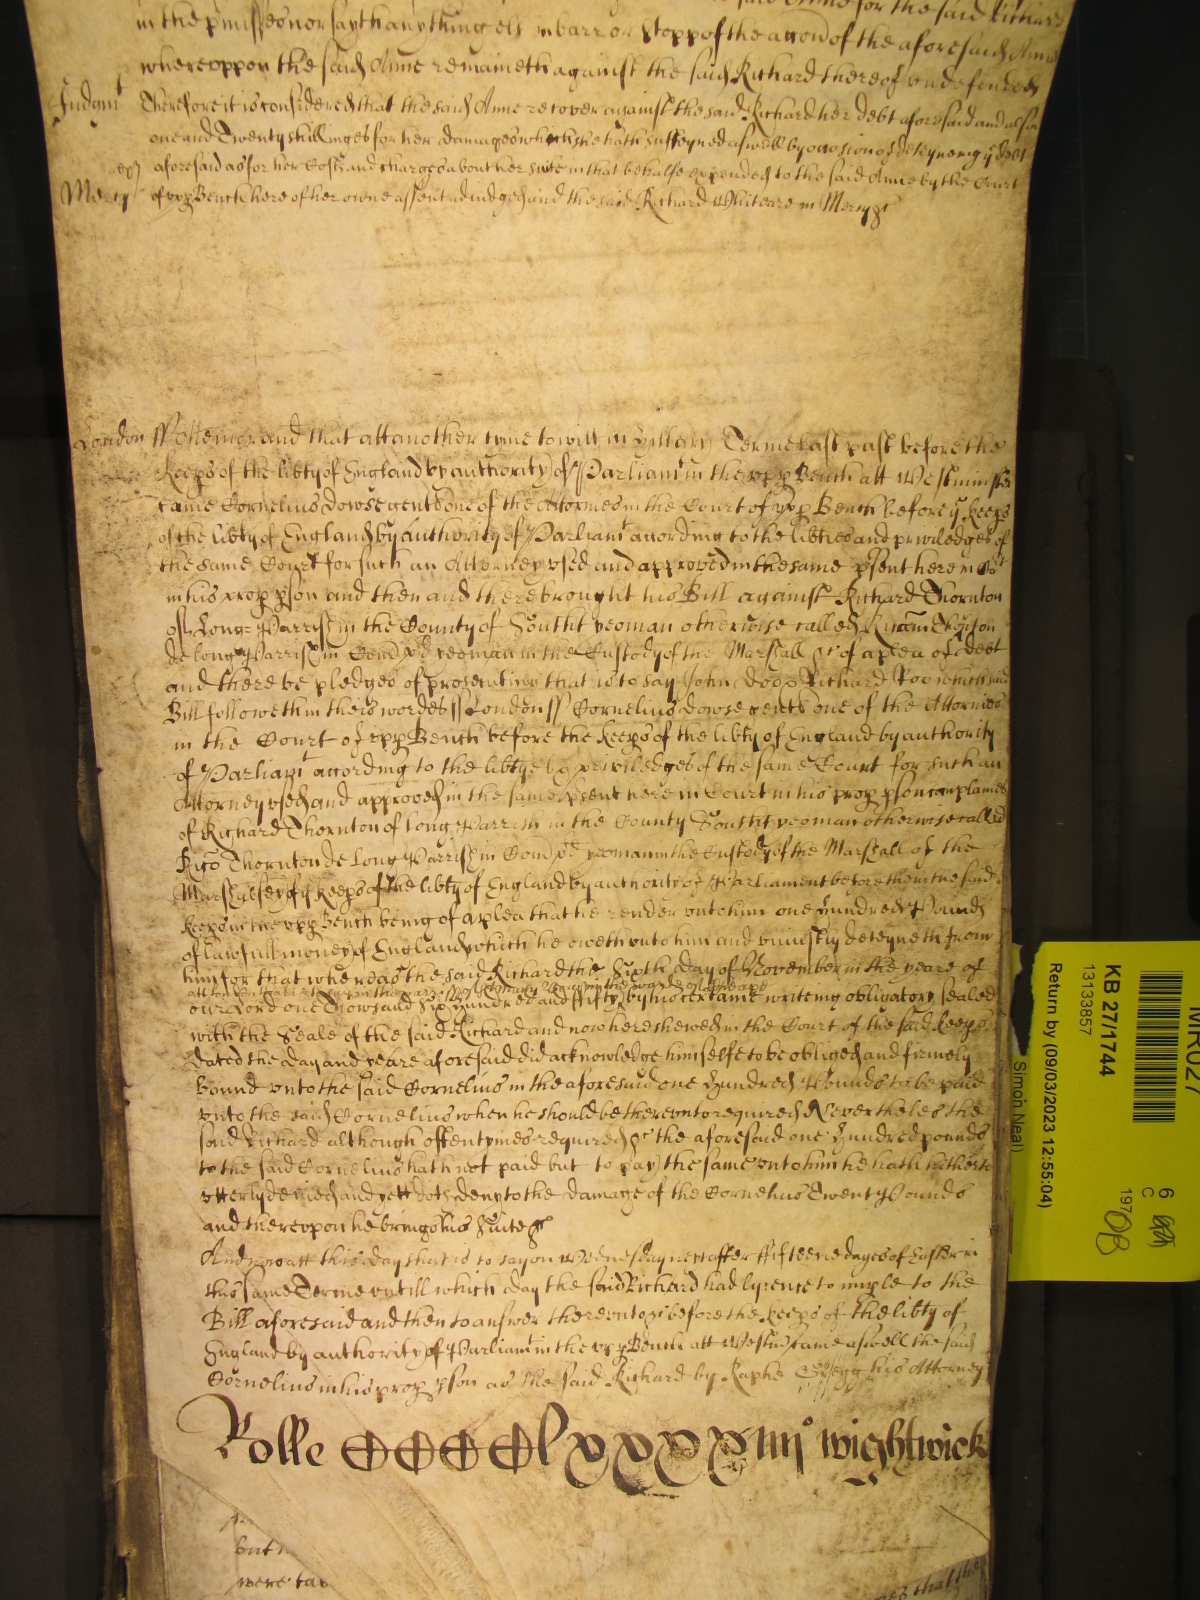 said Anne for the said Richard
in the pmisses nor sayth anything els in barr or stopp of the accon of the aforesaid Anne
whereuppon the said Anne remaineth against the said Richard thereof undefended
Judgmt Therefore it is considered that the said Anne recover against the said Richard her debt aforesaid and alsoe
one and Twenty shillinges for her damages which she hath susteyned aswell by occasion of deteyneing ye debt
aforesaid as for her Costs and charges about her suite in that behalfe expended to the said Anne by the Court
Mercy of upp Bench here of her owne assent adiudged and the said Richard White are in Mercy &c
London ss Memorand that att another tyme to witt in Hillary Terme last past before the
Keeps of the libty of England by authority of Parliamt in the upp Bench att Westminster
came Cornelius Dowse gent one of the Attornies in the Court of upp Bench before ye Keeps
of the libty of England by authority of Parliamt according to the libties and priviledges of
the same Court for such an Attorney used and approved in the same psent here in Cot
in his prop pson and then and there brought his Bill against Richard Thornton
of Long Parrish in the County of Southt yeoman otherwise called
de long Parrish in Com pd yeoman in the Custody of the Marshall &c of a plea of debt
and there be pledges of prosecuting that is to say John Doo Richard Roo which said
Bill followeth in theis wordes ss London ss Cornelius Dowse gent one of the Attornies
in the Court of upp Bench before the Keeps of the libty of England by authority
of Parliamt according to the libtyes & priviledges of the same Court for such an
Attorney used and approved in the same psent here in Court in his prop pson complaines
of Richard Thornton of long Parrish in the County Southt yeoman otherwise called
Rico Thornton de Long Parrish in Com pd yeoman in the Custody of the Marshall of the
Marshalsey of ye Keeps of the libty of England by authority of Parliament before them the said
Keeps in the upp Bench being of a plea that he render unto him one Hundred Pounds
of lawfull money of England which he oweth unto him and uniustly deteyneth from
him for that whereas the said Richard the Sixth day of November in the yeare of
our Lord one Thowsand Six Hundred and fifty by his certaine writeing obligatory sealed
with the Seale of the said Richard and now here shewed in the Court of the said Keeps
dated the day and yeare aforesaid did acknowledge himselfe to be obliged and firmely
bound unto the said Cornelius in the aforesaid one Hundred Pounds to be paid
unto the said Cornelius when he should be thereunto required Neverthelesse the
said Richard although oftentymes required &c the aforesaid one Hundred pounds
to the said Cornelius hath not paid but to pay the same unto him he hath hitherto
utterly denied and yett doth deny to the damage of the Cornelius Twenty Pounds
and thereupon he brings his Suite &c
And now att this day that is to say on Wednesday next after fifteene dayes of Easter in
this same Terme untill which day the said Richard had lycence to imple to the
Bill aforesaid and then to answer thereunto &c before the Keeps of the libty of
England by authority of Parliamt in the upp Bench att Westmr came aswell the said
Cornelius in his prop pson as the said Richard by Raphe his Attorney
Rolle CCCClxxxxiiijo Wightwick
but
were
that the
KB 27/1744
13133857
Return by (09/03/2023 12:55:04)
Simon Neal)
6
C
197